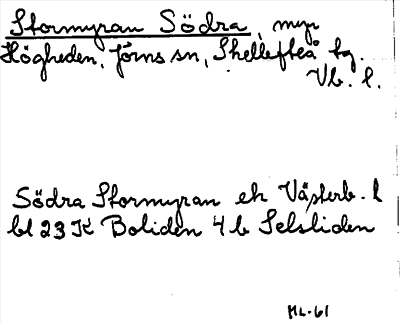 Stormyran Södra, myr
Högheden, Jörns sn, Skellefteå tg.
Vb. l.
Södra Stormyran ek Västerb. l
bl 23 K Boliden 4 b Selsliden
HL-61